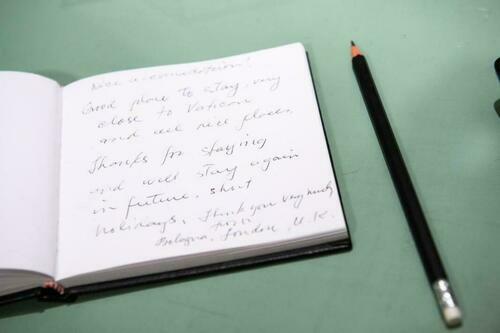 Nice accomodation!
Good place to stay, very
close to Vatican
and all nice places.
Thanks for staying
and will stay again
in future, short
holidays, Thank you very much
Bologna, London, U.K.